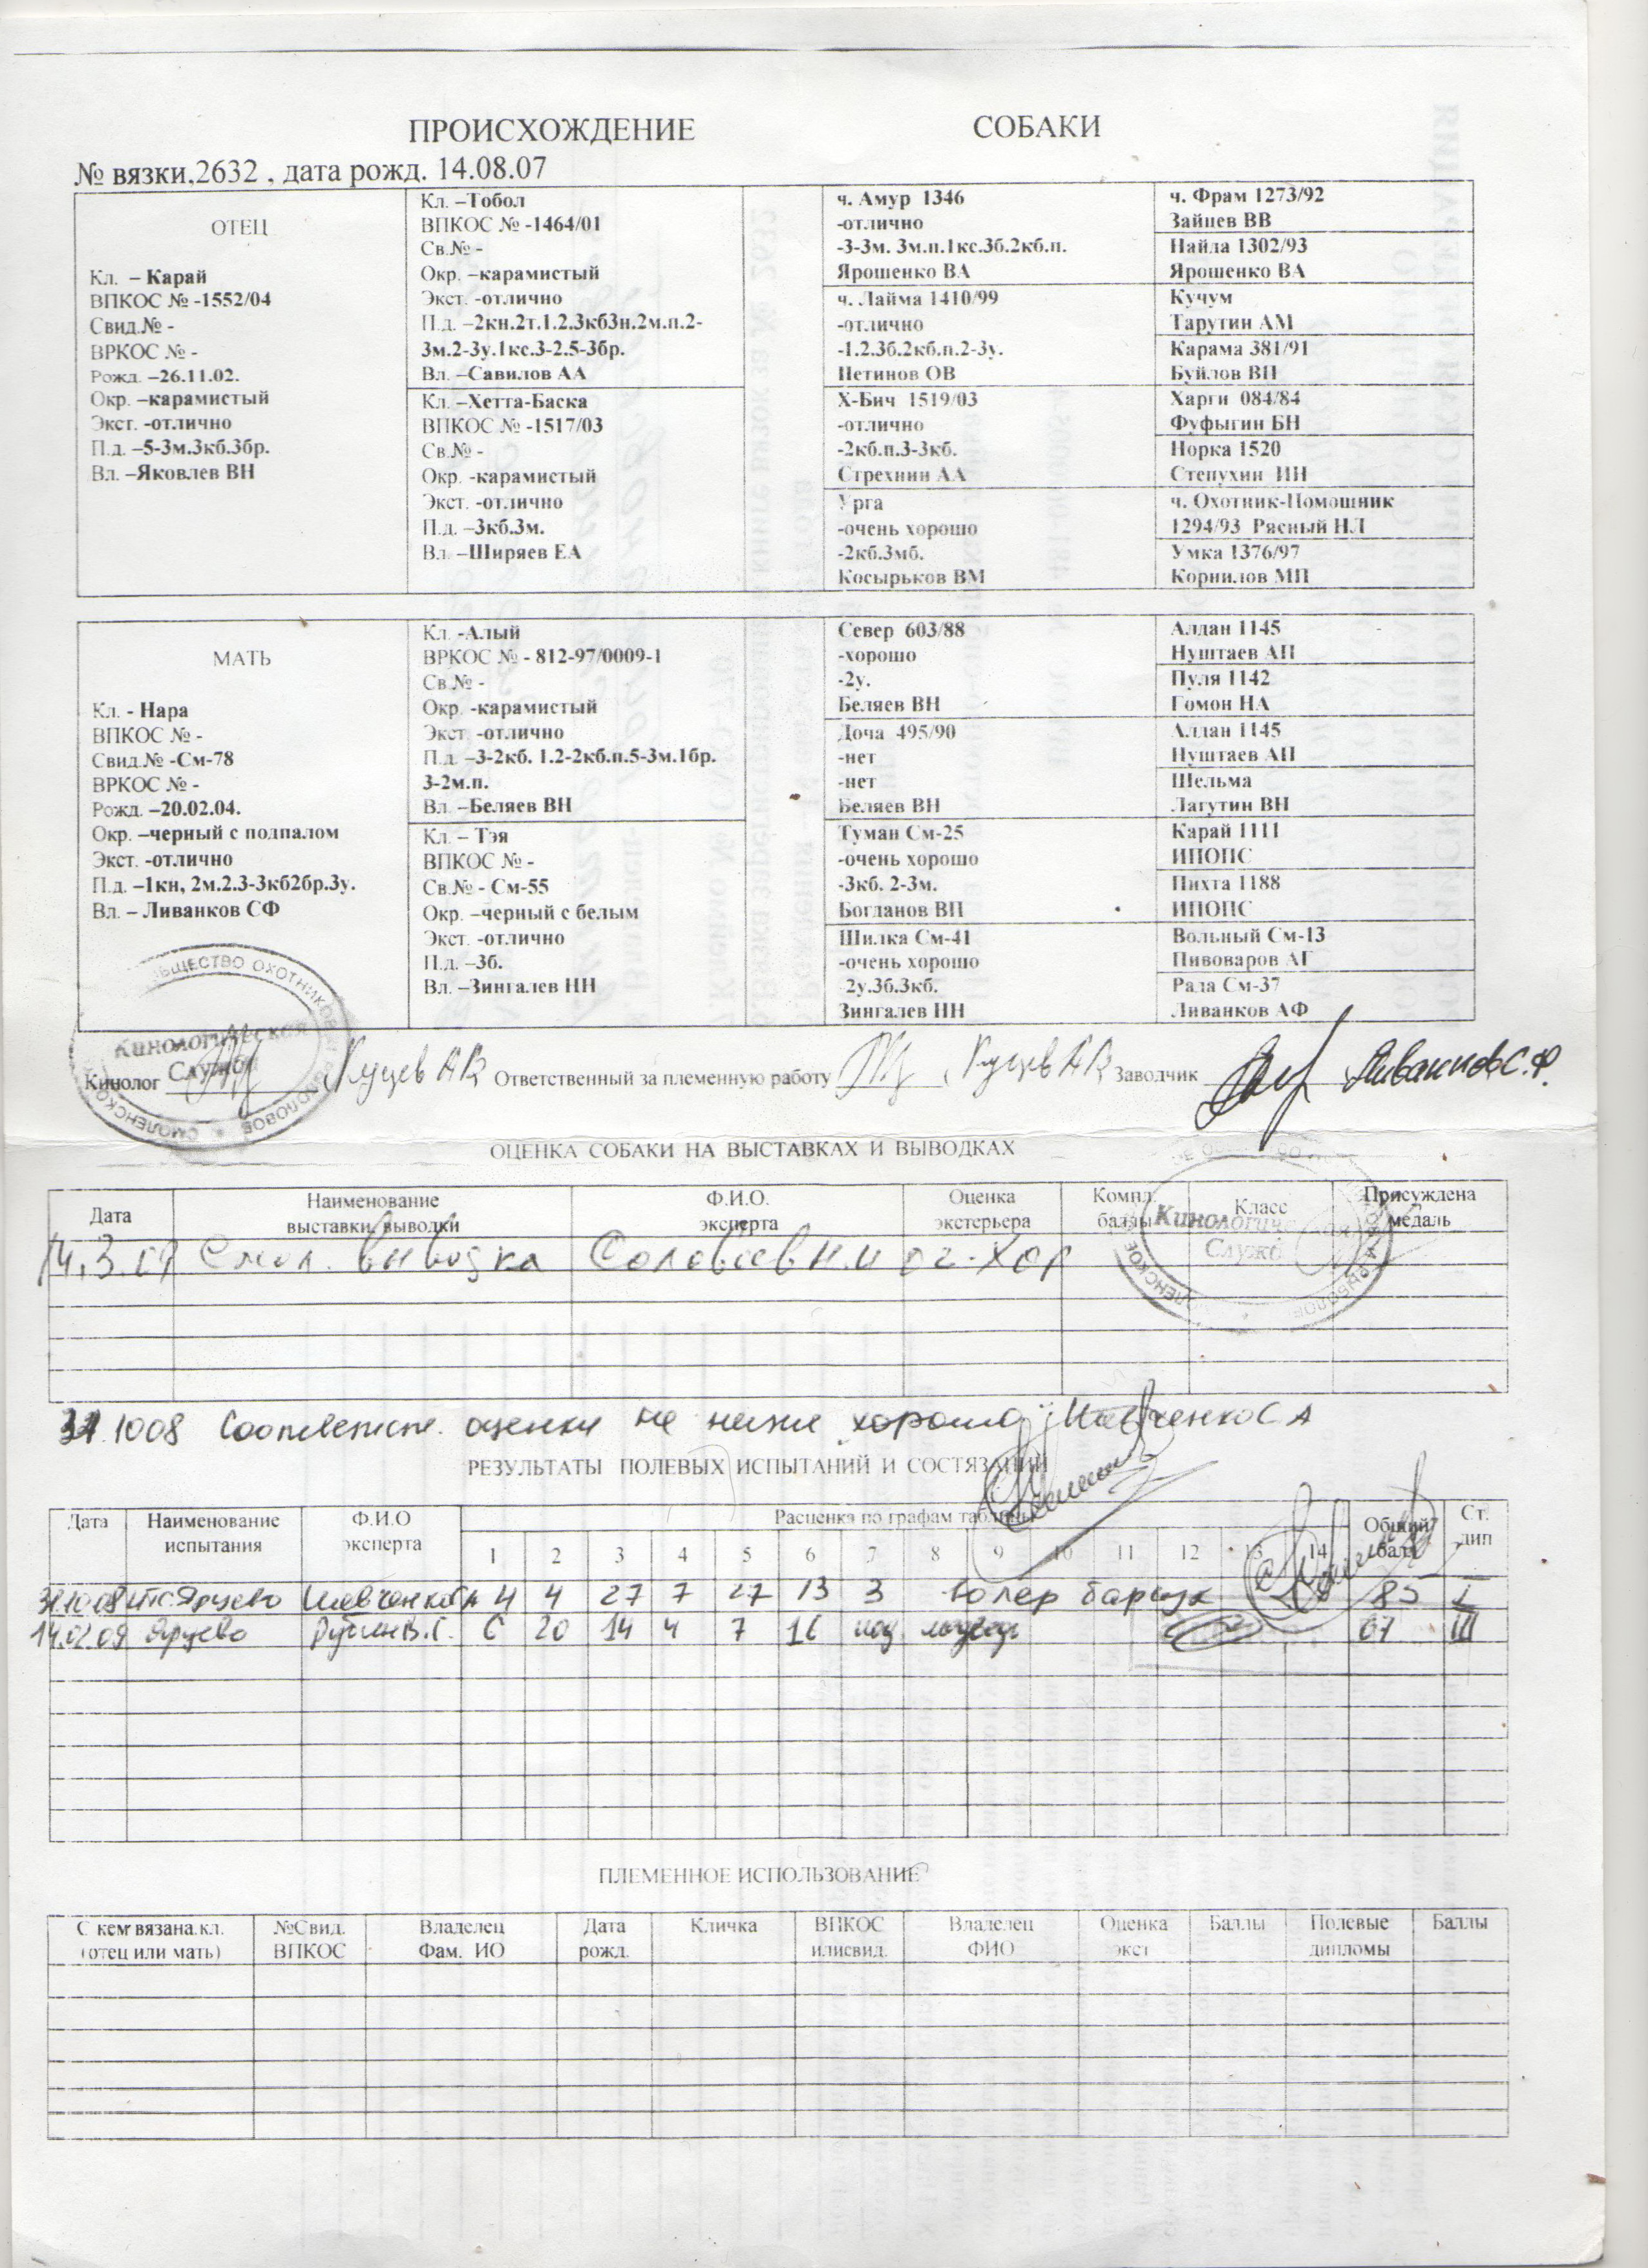 ПРОИСХОЖДЕНИЕ СОБАКИ
№ вязки.2632 , дата рожд. 14.08.07
ОТЕЦ
Кл. – Карай
ВПКОС № -1552/04
Свид.№ -
ВРКОС № -
Рожд. –26.11.02.
Окр. –карамистый
Экст. -отлично
П.д. –5-3м.3кб.3бр.
Вл. –Яковлев ВН
Кл. –Тобол
ВПКОС № -1464/01
Св.№ -
Окр. –карамистый
Экст. -отлично
П.д. –2кн.2т.1.2.3кб3н.2м.п.2-
3м.2-3у.1кс.3-2.5-3бр.
Вл. –Савилов АА
Кл. –Хетта-Баска
ВПКОС № -1517/03
Св.№ -
Окр. -карамистый
Экст. -отлично
П.д. –3кб.3м.
Вл. –Ширяев ЕА
ч. Амур 1346
-отлично
-3-3м. 3м.п.1кс.3б.2кб.п.
Ярошенко ВА
ч. Лайма 1410/99
-отлично
-1.2.3б.2кб.п.2-3у.
Петинов ОВ
Х-Бич 1519/03
-отлично
-2кб.п.3-3кб.
Стрехнин АА
Урга
-очень хорошо
-2кб.3мб.
Косырьков ВМ
ч. Фрам 1273/92
Зайцев ВВ
Найда 1302/93
Ярошенко ВА
Кучум
Тарутин АМ
Карама 381/91
Буйлов ВП
Харги 084/84
Фуфыгин БН
Норка 1520
Степухин ИН
ч. Охотник-Помошник
1294/93 Рясный НЛ
Умка 1376/97
Корнилов МП
МАТЬ
Кл. - Нара
ВПКОС № -
Свид.№ -См-78
ВРКОС № -
Рожд. –20.02.04.
Окр. –черный с подпалом
Экст. -отлично
П.д. –1кн, 2м.2.3-3кб2бр.3у.
Вл. – Ливанков СФ
Кл. -Алый
ВРКОС № - 812-97/0009-1
Св.№ -
Окр. -карамистый
Экст. -отлично
П.д. –3-2кб. 1.2-2кб.п.5-3м.1бр.
3-2м.п.
Вл. –Беляев ВН
Кл. – Тэя
ВПКОС № -
Св.№ - См-55
Окр. –черный с белым
Экст. -отлично
П.д. –3б.
Вл. –Зингалев НН
Север 603/88
-хорошо
-2у.
Беляев ВН
Доча 495/90
-нет
-нет
Беляев ВН
Туман См-25
-очень хорошо
-3кб. 2-3м.
Богданов ВП
Шилка См-41
-очень хорошо
-2у.3б.3кб.
Зингалев НН
Алдан 1145
Нуштаев АП
Пуля 1142
Гомон НА
Алдан 1145
Нуштаев АП
Шельма
Лагутин ВН
Карай 1111
ИПОПС
Пихта 1188
ИПОПС
Вольный См-13
Пивоваров АГ
Рада См-37
Ливанков АФ
Кинологическая
Служба
Кинолог Куцев АВ Ответственный за племенную работу Куцев АВ Заводчик Ливанков С.Ф.
ОЦЕНКА СОБАКИ НА ВЫСТАВКАХ И ВЫВОДКАХ
Дата
Наименование
выставки, выводки
Ф.И.О.
эксперта
Оценка
экстерьера
Компл.
баллы
Класс
Присуждена
медаль
14.3.09 Смол. выводка Соловьев Н.И оч-хор
31.1008 Соответств. оценки не ниже хорошо Шевченко С А
РЕЗУЛЬТАТЫ ПОЛЕВЫХ ИСПЫТАНИЙ И СОСТЯЗАНИЙ
Дата
Наименование
испытания
Ф.И.О
эксперта
Расценка по графам таблицы
1 2 3 4 5 6 7 8 9 10 11 12 13 14
Общий
балл
Ст.
дип
31.10 08 Ярцево Шевченко СА 4 4 27 7 27 13 3 барсук 85 I
14.02.09 Ярцево 6 20 14 4 7 16 медведь 67 III
ПЛЕМЕННОЕ ИСПОЛЬЗОВАНИЕ
С кем вязана.кл.
(отец или мать)
№Свид.
ВПКОС
Владелец
Фам. ИО
Дата
рожд.
Кличка
ВПКОС
илисвид.
Владелец
ФИО
Оценка
экст
Баллы
Полевые
дипломы
Баллы